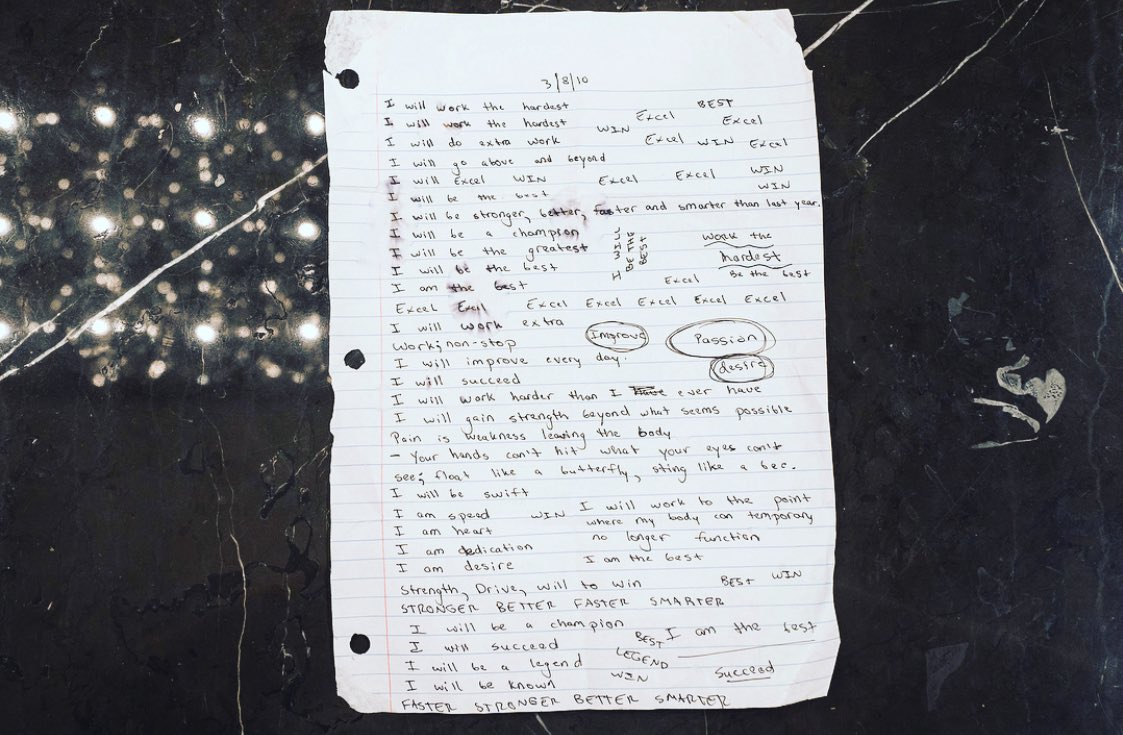 3/8/10
I will work the hardest BEST
I will work the hardest WIN Excel Excel
I will do extra work Excel WIN Excel
I will go above and beyond
I will Excel WIN Excel Excel WIN
I will be the best WIN
I will be stronger, better, faster and smarter than last year.
I will be a champion
I will be the greatest
I will be the best
I am the best
I WILL
BE THE
BEST
Work the
hardest
Be the best
Excel
Excel Excel Excel Excel Excel Excel Excel
I will work extra
Work; non-stop Improve Passion
I will improve every day. desire
I will succeed
I will work harder than I have ever have
I will gain strength beyond what seems possible
Pain is weakness leaving the body
- Your hands can't hit what your eyes can't
see; float like a butterfly, sting like a bee.
I will be swift
I am speed WIN
I am heart
I am dedication
I am desire
I will work to the point
where my body can temporary
no longer function
I am the best
Strength, Drive, will to win BEST WIN
STRONGER BETTER FASTER SMARTER
I will be a champion
I will succeed BEST I am the best
I will be a legend LEGEND
I will be known WIN Succeed
FASTER STRONGER BETTER SMARTER